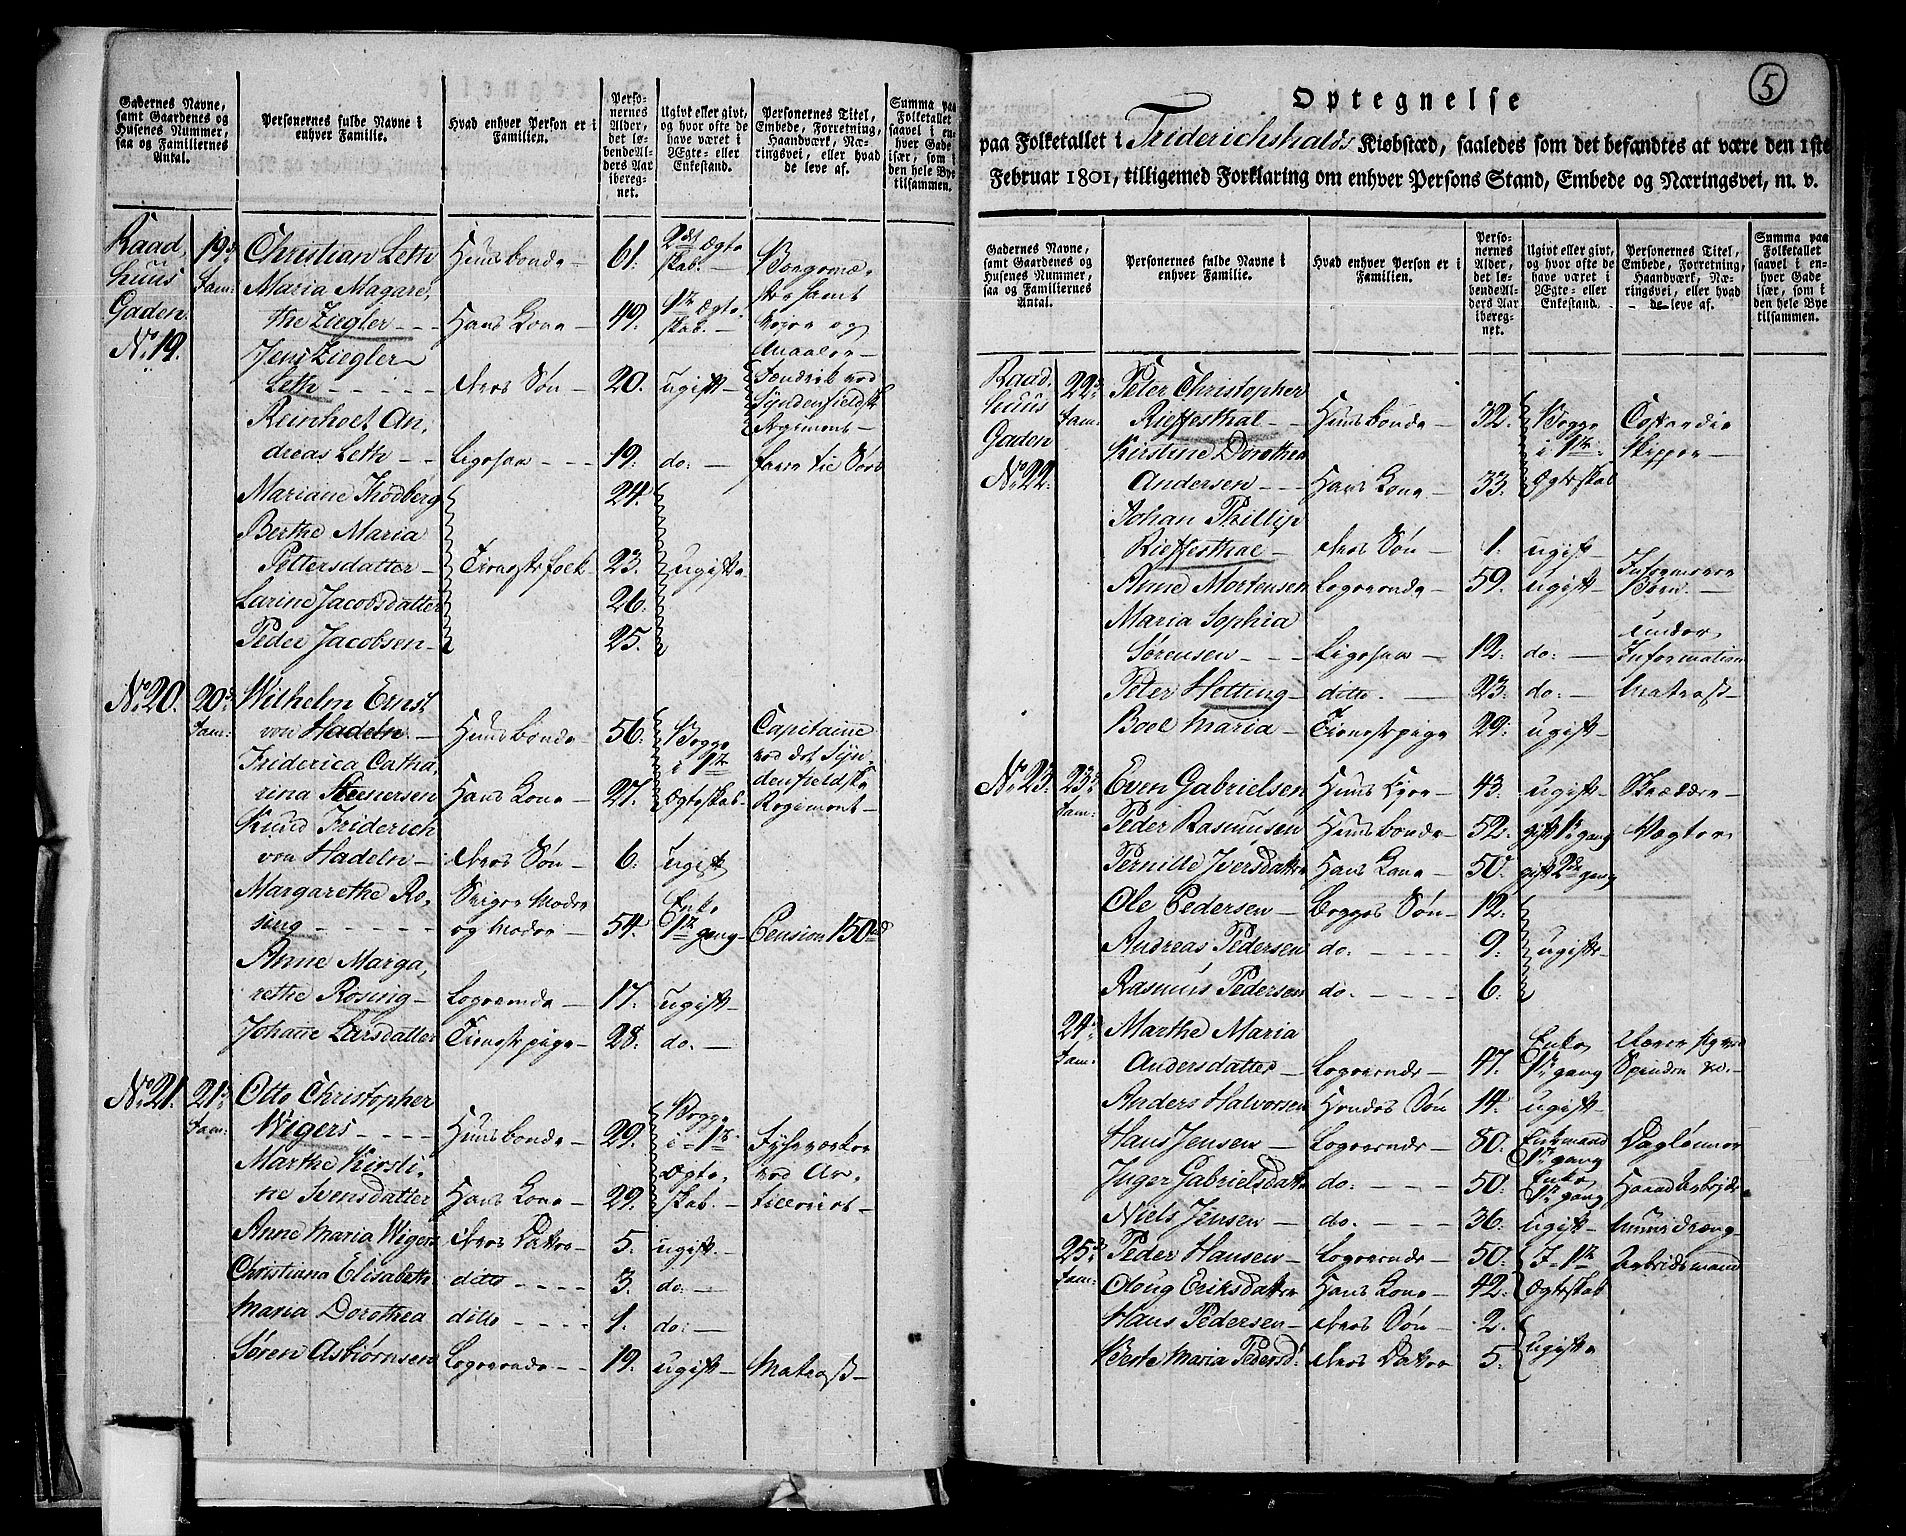 Gadernes Navne, samt Gaardenes og Husenes Nummer, saa og Familiernes Antal.
Personernes fulde Navne i enhver Familie.
Hvad enhver Person er i Familien.
Personernes Alder, det løbende Alders Aar iberegnet.
Ugivt eller givt, og hvor ofte de have været i Ægte- eller Enkestand.
Personernes Titel, Embede, Forretning, Haandværk, Næringsvei, eller hvad de leve af.
Summa paa Folketallet saavel i enhver Gade især, som i den hele Bye tilsammen.
Raad, huus Gaden No. 19. 19de Fam:
Christian Leth Huusbonde 61. 2det Ægteskab. Borgemæ-
Maria Magare, ster samt
the Ziegler Hans Kone 49. 1te Ægteskab. Veier og
Jens Ziegler Maaler
Leth deres Søn 20. ugift Fændrik ved Syndenfieldske Regiment
Reinholt An,
dreas Leth Ligesaa 19. do:
Mariane Thodberg 24.
Berthe Maria
Pettersdatter Tienestefolk 23. ugifte
Larine Jacobsdatter 26.
Peder Jacobsen 25.
No. 20. 20de Fam:
Wilhelm Ernst
von Hadeln Huusbonde 56. Begge i 1te Capitaine ved det Syn,
Friderica Catha,
rina Steenersen Hans Kone 27. Ægteskab denfieldske Regiment
Knud Friderich
von Hadeln deres Søn 6. ugift
Margarethe Ro, Sviger Moder
sing og Moder 54. Enke 1te gang Pension 150rd
Anne Marga,
rethe Rosing Logerende 17. ugift
Johane Larsdatter Tienestepige 28. do.
No. 21. 21de Fam:
Otto Christopher
Wigers Huusbonde 29. Begge i 1te Fyhrverker
Marthe Kirsti, Ægte, ved Ar,
ne Svensdatter Hans Kone 29. skab. tilleriet
Anne Maria Wigers deres Datter 5. ugift
Christiana Elisabeth ditto 3. do:
Maria Dorothea ditto 1. do:
Søren Asbiørnsen Logerende 19. ugift Matros
5
Optegnelse
paa Folketallet i Friderichshalds Kiøbstæd, saaledes som det befandtes at være den 1ste
Februar 1801, tilligemed Forklaring om enhver Persons Stand, Embede og Næringsvei, m. v.
Gadernes Navne, samt Gaardenes og Husenes Nummer, saa og Familiernes Antal.
Personernes fulde Navne i enhver Familie.
Hvad enhver Person er i Familien.
Personernes Alder, det løbende Alders Aar iberegnet.
Ugivt eller givt, og hvor ofte de have været i Ægte- eller Enkestand.
Personernes Titel, Embede, Forretning, Haandværk, Næringsvei, eller hvad de leve af.
Summa paa Folketallet saavel i enhver Gade især, som i den hele Bye tilsammen.
Raad, huus Gaden No. 22. 22de Fam:
Peter Christopher
Rieffesthal Huusbonde 32. Begge i 1te
Kirstine Dorothea Skipper
Andersen Hans Kone 33. Ægteskab
Johan Phillip
Rieffesthal deres Søn 1. ugift
Anne Mortensen Logerende 59. ugift Informerer Børn.
Maria Sophia under
Sørensen Ligesaa 12. do: Information
Peter Hetting ditto 23. do: Matros
Boel Maria Tienestepige 29. ugift
No. 23. 23de Fam:
Even Gabrielsen Huus Eyer 43. ugift Skrædder
Peder Rasmusen Huusbonde 52. gift 1te gang Vægter
Pernille Iversdatter Hans Kone 50. gift 2de gang
Ole Pedersen Begges Søn 12.
Andreas Pedersen do. 9. ugifte
Rasmus Pedersen do. 6.
24de Fam:
Marthe Maria
Andersdatter Logerende 47. Enke 1te gang
Anders Halvorsen Hendes Søn 14. ugift
Hans Jensen Logerende 80. Enkemand 1te gang Dagleønner
Inger Gabrielsdatter do: 50. Enke 1te gang Haandarbeide
Niels Jensen do. 36. ugift
25de Fam:
Peder Hansen Logerende 50. I 1te Arbeidsmand
Oloug Eriksdatter Hans Kone 42. Ægteskab
Hans Pedersen deres Søn 2. ugifte
Berte Maria Pedersd: deres Datter 5.